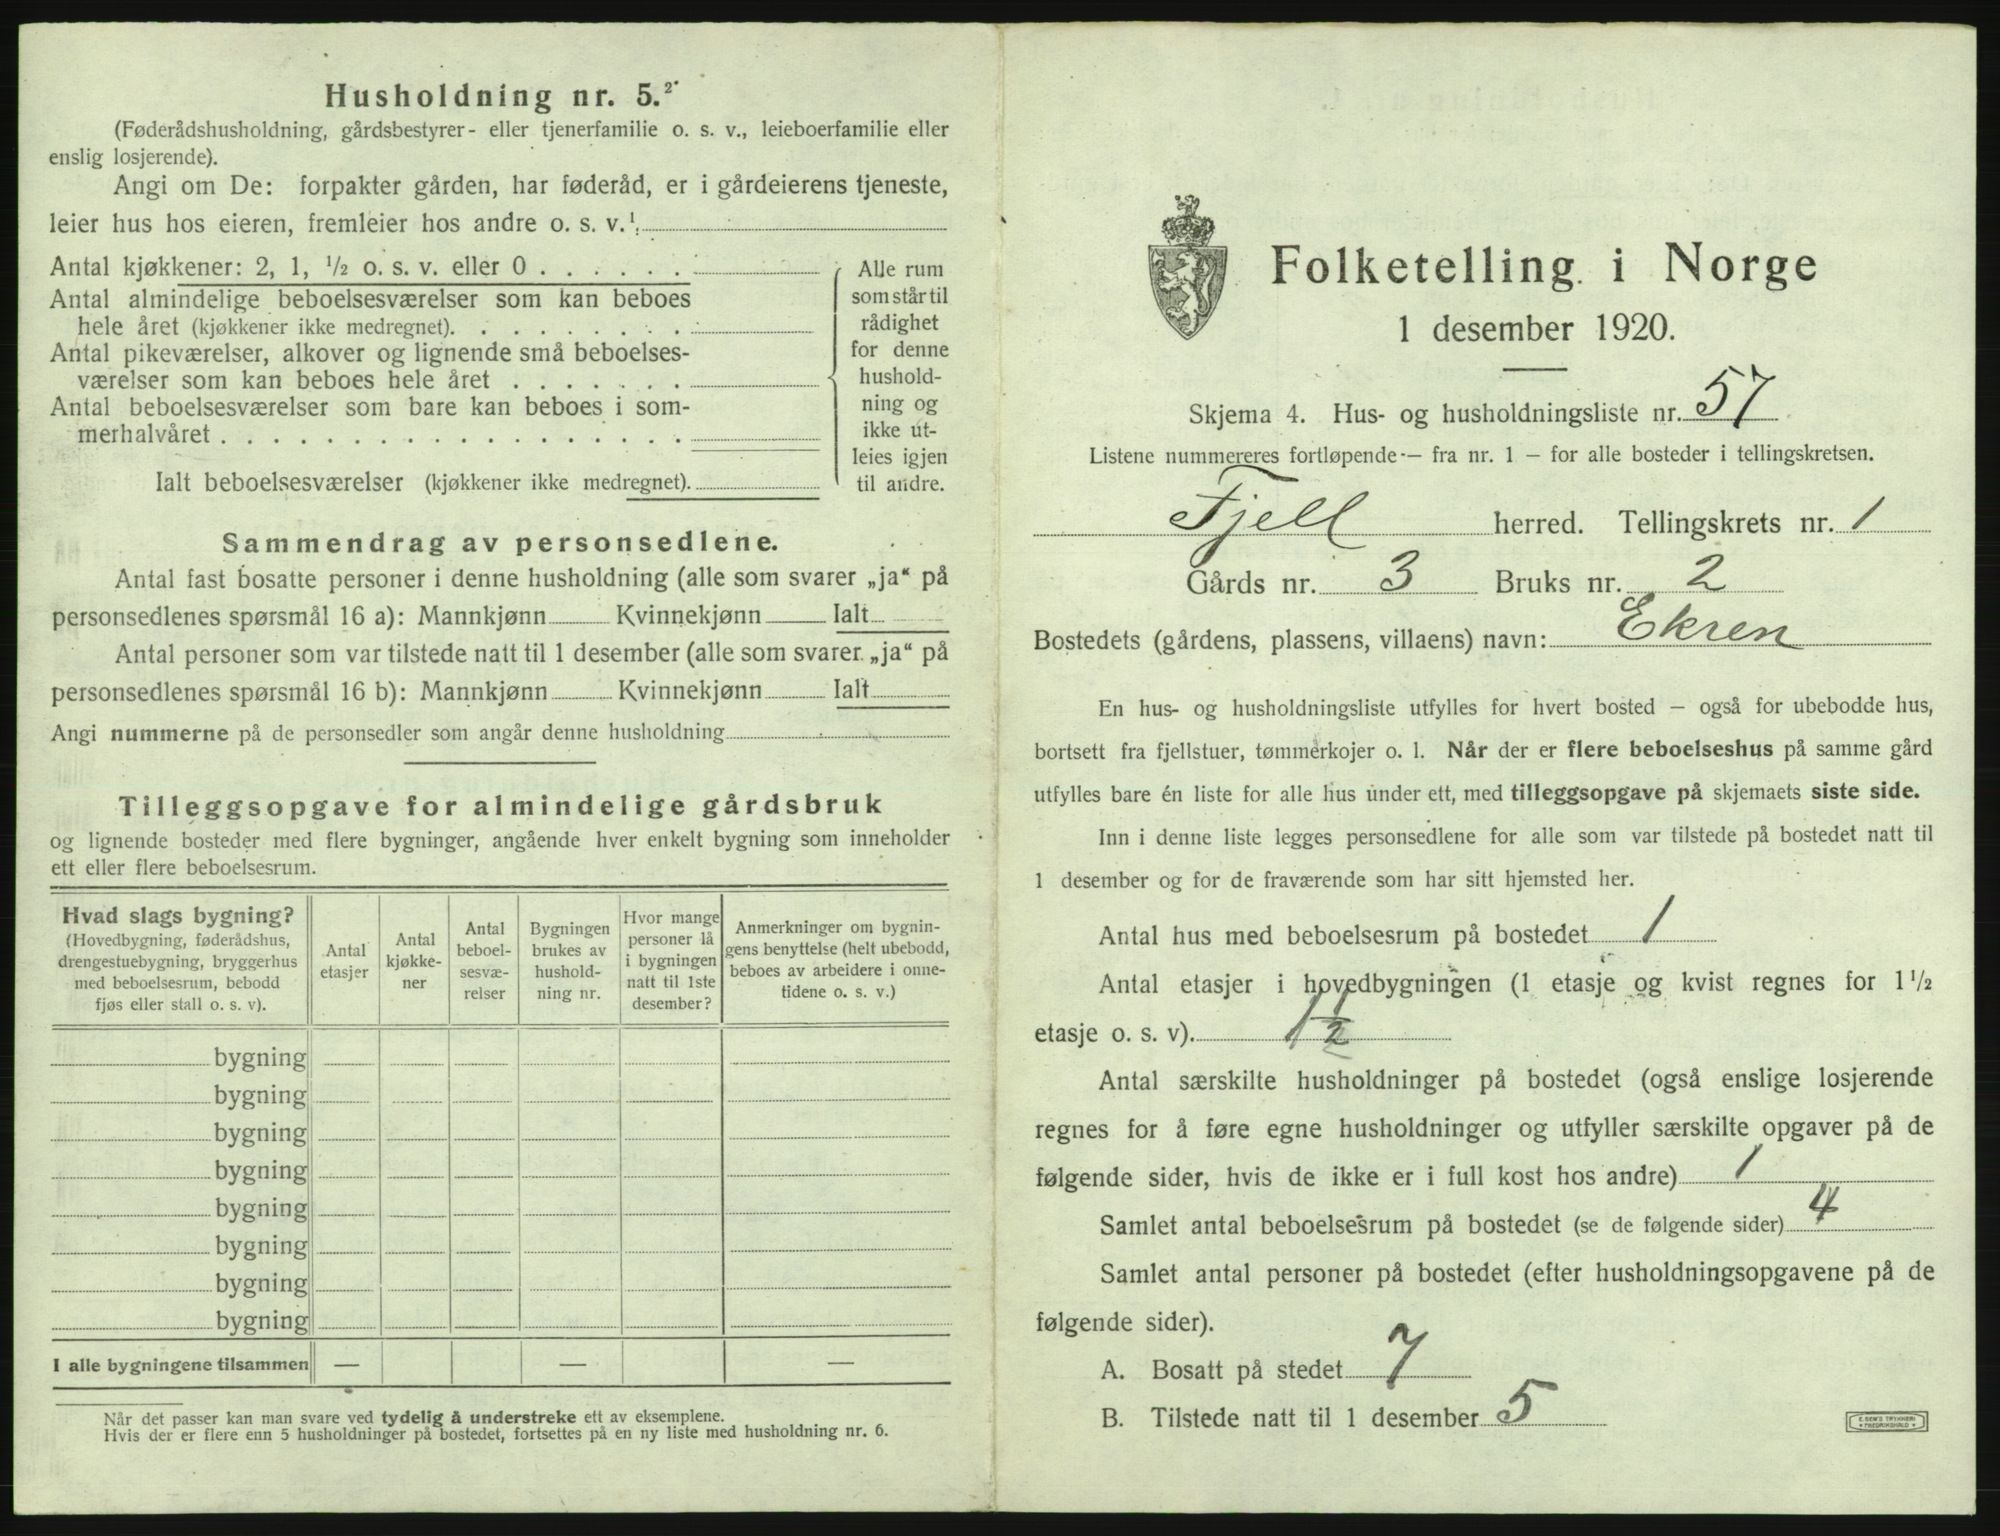 Husholdning nr. 5.²
(Føderådshusholdning, gårdsbestyrer- eller tjenerfamilie o. s. v., leieboerfamilie eller
enslig losjerende).
Angi om De: forpakter gården, har føderåd, er i gårdeierens tjeneste,
leier hus hos eieren, fremleier hos andre o. s. v.¹
Antal kjøkkener: 2, 1, ½ o. s. v. eller 0 . . . . . .
Antal almindelige beboelsesværelser som kan beboes
hele året (kjøkkener ikke medregnet). . . . . . . . .
Antal pikeværelser, alkover og lignende små beboelses-
værelser som kan beboes hele året . . . . . . .
Antal beboelsesværelser som bare kan beboes i som-
merhalvåret . . . . . . . . . . . . . . . . . .
Ialt beboelsesværelser (kjøkkener ikke medregnet).
Alle rum
som står til
rådighet
for denne
hushold-
ning og
ikke ut-
leies igjen
til andre.
Sammendrag av personsedlene.
Antal fast bosatte personer i denne husholdning (alle som svarer „ja“ på
personsedlenes spørsmål 16 a): Mannkjønn Kvinnekjønn Ialt
Antal personer som var tilstede natt til 1 desember (alle som svarer „ja“ på
personsedlenes spørsmål 16 b): Mannkjønn Kvinnekjønn Ialt
Angi nummerne på de personsedler som angår denne husholdning
Tilleggsopgave for almindelige gårdsbruk
og lignende bosteder med flere bygninger, angående hver enkelt bygning som inneholder
ett eller flere beboelsesrum.
Hvad slags bygning?
(Hovedbygning, føderådshus,
drengestuebygning, bryggerhus
med beboelsesrum, bebodd
fjøs eller stall o. s. v).
Antal
etasjer
Antal
kjøkke-
ner
Antal
beboel-
sesvæ-
relser
Bygningen
brukes av
hushold-
ning nr.
Hvor mange
personer lå
i bygningen
natt til 1ste
desember?
Anmerkninger om bygnin-
gens benyttelse (helt ubebodd,
beboes av arbeidere i onne-
tidene o. s. v.)
bygning
bygning
bygning
bygning
bygning
bygning
bygning
bygning
I alle bygningene tilsammen — — —
Når det passer kan man svare ved tydelig å understreke ett av eksemplene.
Hvis der er flere enn 5 husholdninger på bostedet, fortsettes på en ny liste med husholdning nr. 6.
Folketelling i Norge
1 desember 1920.
Skjema 4. Hus- og husholdningsliste nr. 57
Listene nummereres fortløpende — fra nr. 1 — for alle bosteder i tellingskretsen.
Fjell herred. Tellingskrets nr. 1
Gårds nr. 3 Bruks nr. 2
Bostedets (gårdens, plassens, villaens) navn: Ekren
En hus- og husholdningsliste utfylles for hvert bosted — også for ubebodde hus,
bortsett fra fjellstuer, tømmerkojer o. l. Når der er flere beboelseshus på samme gård
utfylles bare én liste for alle hus under ett, med tilleggsopgave på skjemaets siste side.
Inn i denne liste legges personsedlene for alle som var tilstede på bostedet natt til
1 desember og for de fraværende som har sitt hjemsted her.
Antal hus med beboelsesrum på bostedet 1
Antal etasjer i hovedbygningen (1 etasje og kvist regnes for 1½
etasje o. s. v). 1½
Antal særskilte husholdninger på bostedet (også enslige losjerende
regnes for å føre egne husholdninger og utfyller særskilte opgaver på de
følgende sider, hvis de ikke er i full kost hos andre) 1
Samlet antal beboelsesrum på bostedet (se de følgende sider) 4
Samlet antal personer på bostedet (efter husholdningsopgavene på de
følgende sider).
A. Bosatt på stedet 7
B. Tilstede natt til 1 desember 5
E. SEM'S TRYKKERI
FREDRIKSHALD